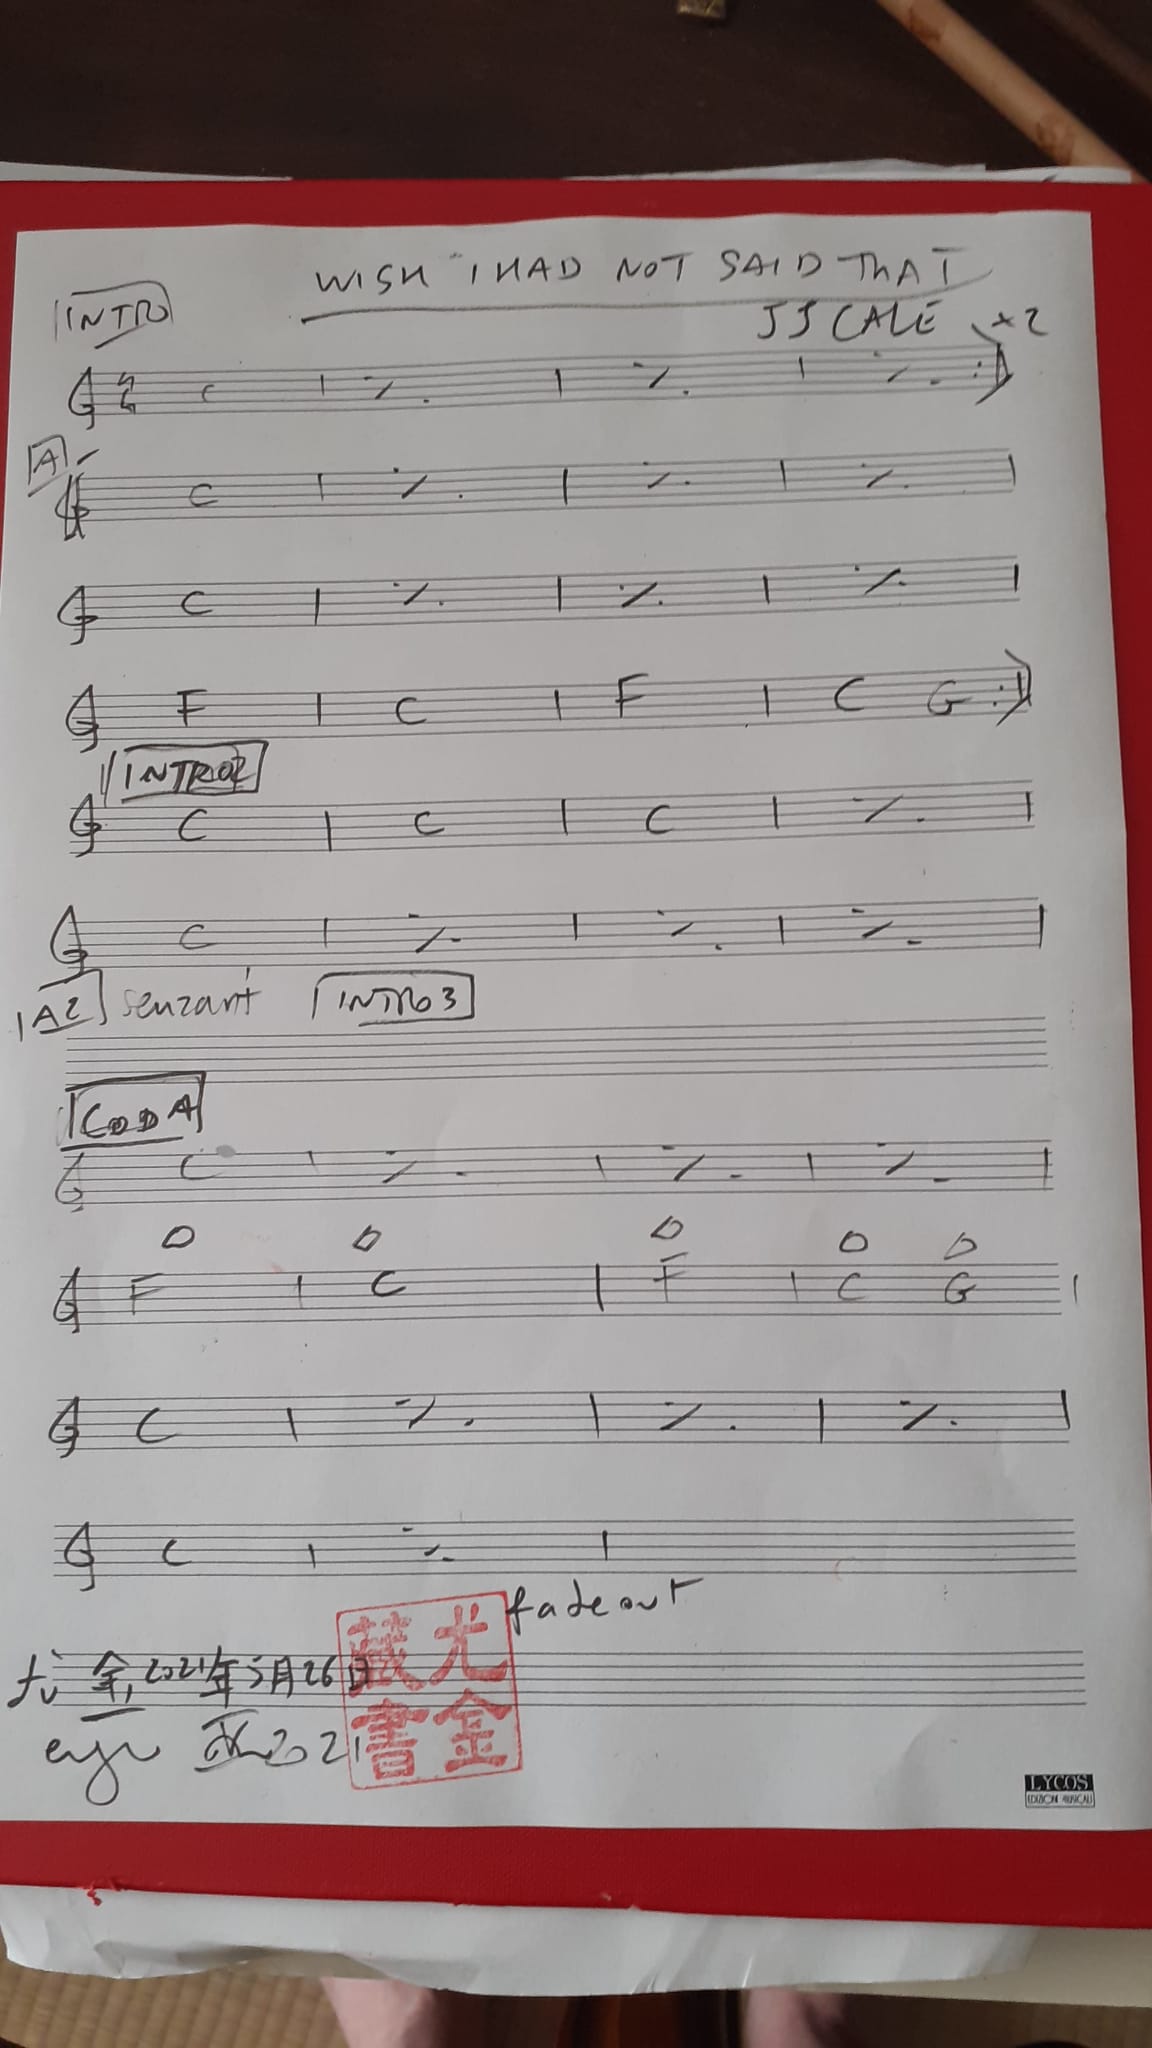 WISH I HAD NOT SAID THAT
INTRO
JJ CALE x2
C | ٪ | ٪ | ٪ :|
A
C | ٪ | ٪ | ٪ |
C | ٪ | ٪ | ٪ |
F | C | F | C G :|
INTRO2
C | C | C | ٪ |
C | ٪ | ٪ | ٪ |
A2 senzarit INTRO 3
CODA
C | ٪ | ٪ | ٪ |
F | C | F | C G |
C | ٪ | ٪ | ٪ |
C | ٪ |
fade out
尤金 2021年5月26日
2021
尤金
藏書
LYCOS
EDIZIONI MUSICALI